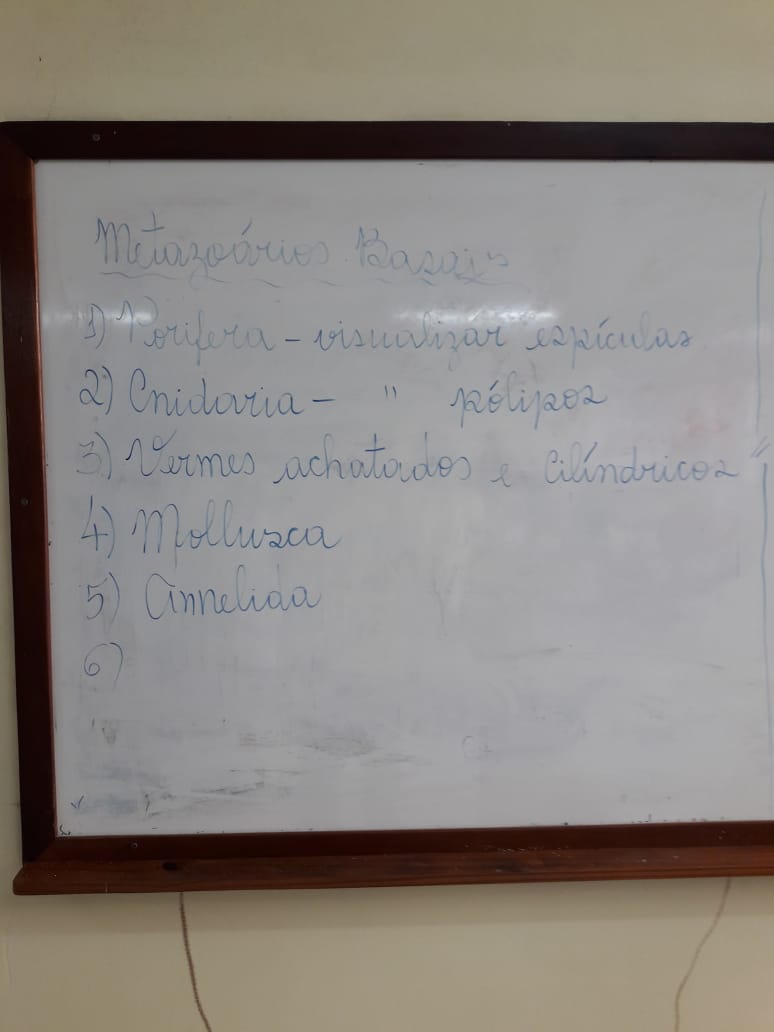 Metazoários Basais
1) Porifera - visualizar espículas
2) Cnidaria - " pólipos
3) Vermes achatados e cilíndricos
4) Mollusca
5) Annelida
6)